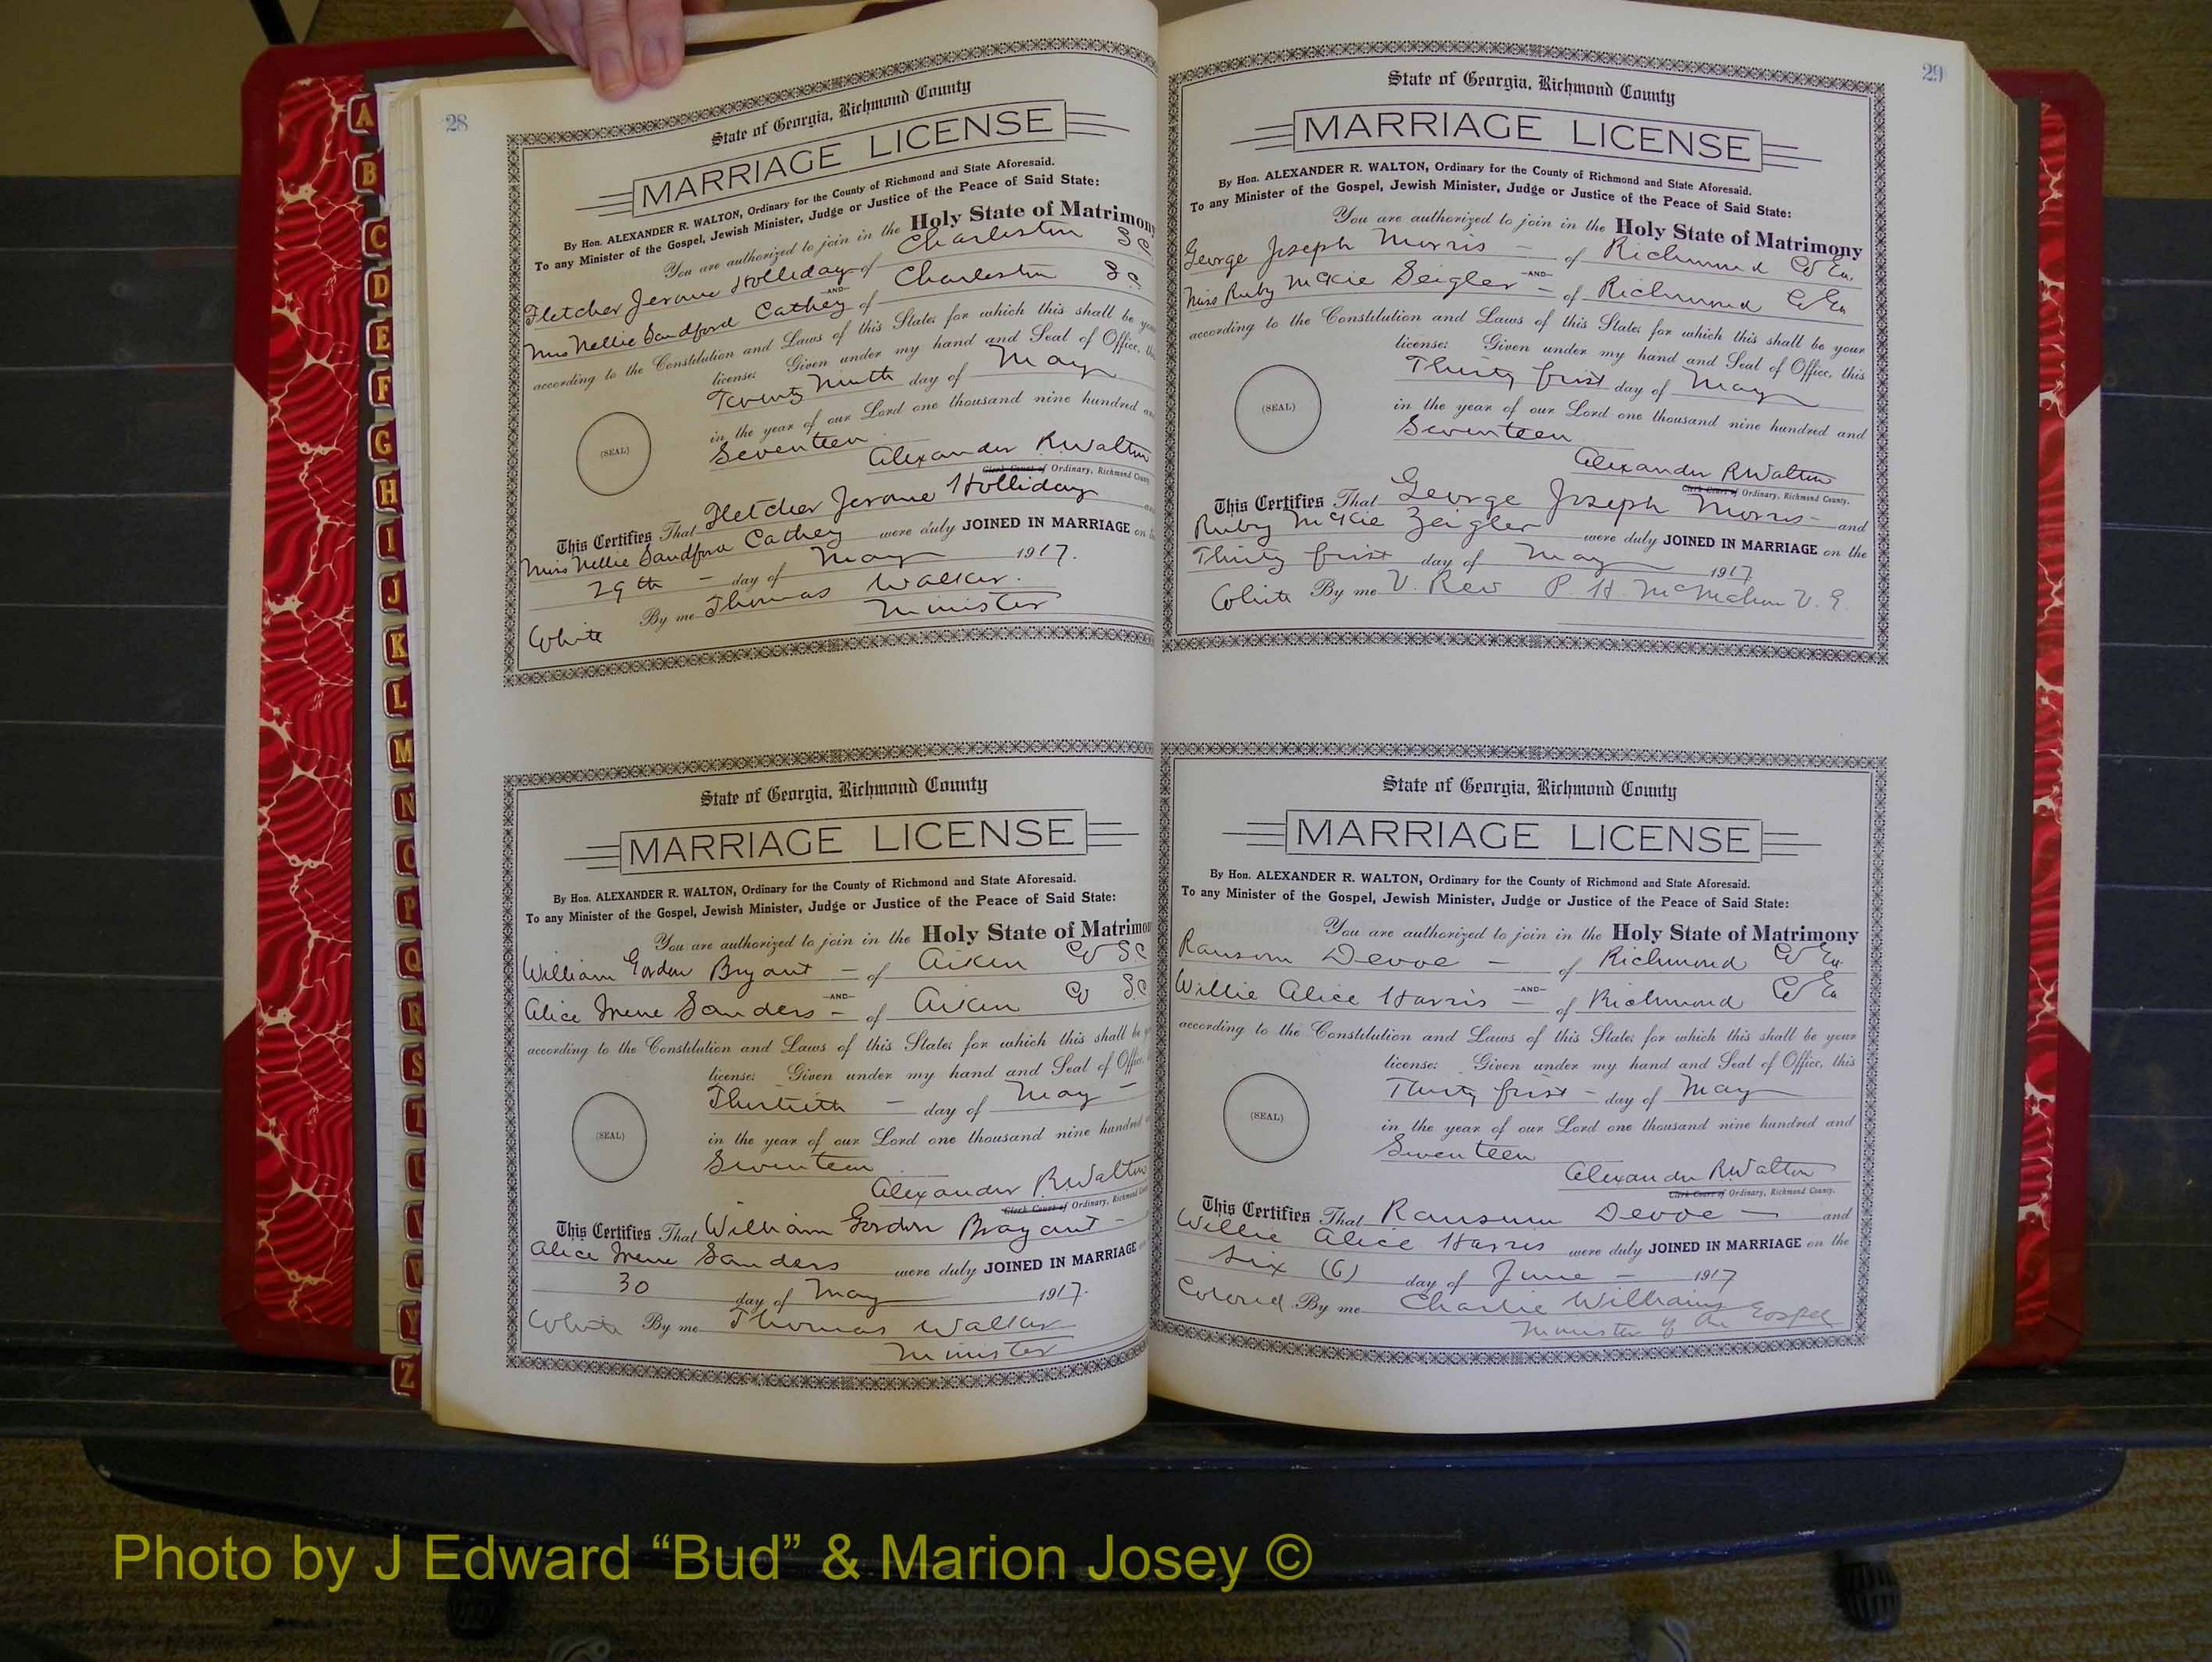 A
B
C
D
E
F
G
H
I
J
K
L
M
N
O
P
Q
R
S
T
U
V
W
Y
Z
28
State of Georgia, Richmond County
MARRIAGE LICENSE
By Hon. ALEXANDER R. WALTON, Ordinary for the County of Richmond and State Aforesaid.
To any Minister of the Gospel, Jewish Minister, Judge or Justice of the Peace of Said State:
You are authorized to join in the Holy State of Matrimony
Fletcher Jerome Holliday of Charleston S C
-AND-
Miss Nellie Sandford Cathey of Charleston S C
according to the Constitution and Laws of this State; for which this shall be you
license; Given under my hand and Seal of Office, th
Twenty Ninth day of May
in the year of our Lord one thousand nine hundred an
Seventeen
(SEAL)
Alexander R. Walton
Clerk Court of Ordinary, Richmond County
This Certifies That Fletcher Jerome Holliday
Miss Nellie Sandford Cathey were duly JOINED IN MARRIAGE on
29th - day of May 1917.
By me Thomas Walker.
Minister
White
State of Georgia, Richmond County
MARRIAGE LICENSE
By Hon. ALEXANDER R. WALTON, Ordinary for the County of Richmond and State Aforesaid.
To any Minister of the Gospel, Jewish Minister, Judge or Justice of the Peace of Said State:
You are authorized to join in the Holy State of Matrimon
William Gordon Bryant - of Aiken Co S.C
-AND-
Alice Irene Sanders - of Aiken Co S.C
according to the Constitution and Laws of this State; for which this shall be
license; Given under my hand and Seal of Office,
Thirtieth - day of May -
in the year of our Lord one thousand nine hundred
Seventeen
(SEAL)
Alexander R. Walton
Clerk Court of Ordinary, Richmond
This Certifies That William Gordon Bryant -
Alice Irene Sanders were duly JOINED IN MARRIAGE
30 day of May 1917.
White By me Thomas Walker
Minister
29
State of Georgia, Richmond County
MARRIAGE LICENSE
By Hon. ALEXANDER R. WALTON, Ordinary for the County of Richmond and State Aforesaid.
To any Minister of the Gospel, Jewish Minister, Judge or Justice of the Peace of Said State:
You are authorized to join in the Holy State of Matrimony
George Joseph Morris - of Richmond Co Ga.
-AND-
Miss Ruby McKie Seigler - of Richmond Co Ga
according to the Constitution and Laws of this State; for which this shall be your
license; Given under my hand and Seal of Office, this
Thirty first day of May
in the year of our Lord one thousand nine hundred and
Seventeen
(SEAL)
Alexander R. Walton
Clerk Court of Ordinary, Richmond County.
This Certifies That George Joseph Morris - and
Ruby McKie Zeigler were duly JOINED IN MARRIAGE on the
Thirty first day of May 1917
White By me V. Rev P. H. McMahon V. G.
State of Georgia, Richmond County
MARRIAGE LICENSE
By Hon. ALEXANDER R. WALTON, Ordinary for the County of Richmond and State Aforesaid.
To any Minister of the Gospel, Jewish Minister, Judge or Justice of the Peace of Said State:
You are authorized to join in the Holy State of Matrimony
Ransom Devoe - of Richmond Co Ga.
-AND-
Willie Alice Harris - of Richmond Co Ga
according to the Constitution and Laws of this State; for which this shall be your
license; Given under my hand and Seal of Office, this
Thirty first - day of May
in the year of our Lord one thousand nine hundred and
Seventeen
(SEAL)
Alexander R. Walton
Clerk Court of Ordinary, Richmond County.
This Certifies That Ransom Devoe - and
Willie Alice Harris were duly JOINED IN MARRIAGE on the
Six (6) day of June - 1917
Colored By me Charlie Williams Gospel
Minister of the
Photo by J Edward “Bud” & Marion Josey ©